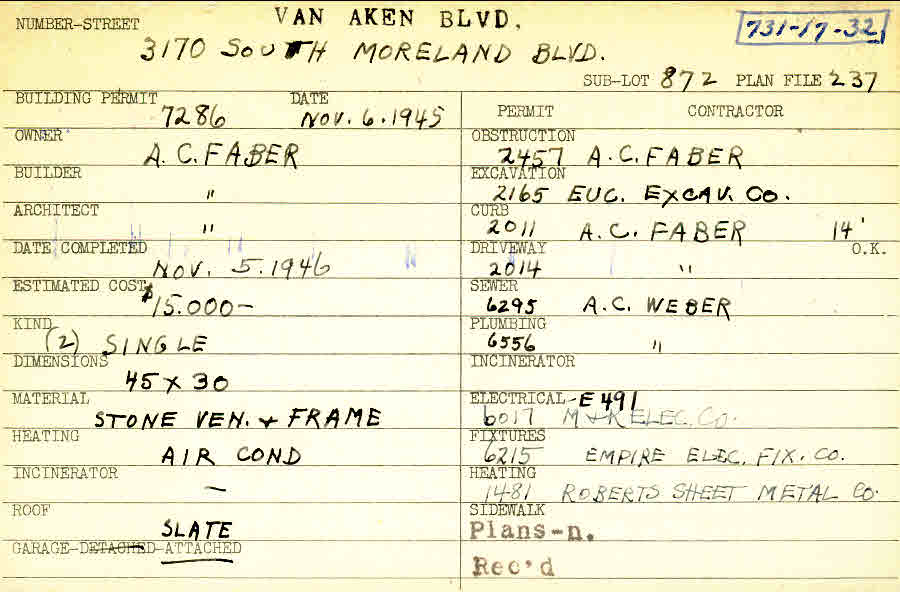 VAN AKEN BLVD.
NUMBER-STREET
731-17-32
3170 SOUTH MORELAND BLVD.
SUB-LOT 872 PLAN FILE 237
BUILDING PERMIT DATE
7286 NOV. 6. 1945
OWNER
A. C. FABER
BUILDER
"
ARCHITECT
"
DATE COMPLETED
NOV. 5. 1946
ESTIMATED COST
$15.000-
KIND
(2) SINGLE
DIMENSIONS
45 x 30
MATERIAL
STONE VEN. & FRAME
HEATING
AIR COND
INCINERATOR
-
ROOF
SLATE
GARAGE-DETACHED-ATTACHED
PERMIT CONTRACTOR
OBSTRUCTION
2457 A. C. FABER
EXCAVATION
2165 EUC. EXCAV. CO.
CURB
2011 A. C. FABER 14'
DRIVEWAY O.K.
2014 "
SEWER
6295 A.C. WEBER
PLUMBING
6556 "
INCINERATOR
ELECTRICAL-E 491
6017 M & R ELEC. CO.
FIXTURES
6215 EMPIRE ELEC. FIX. CO.
HEATING
1481 ROBERTS SHEET METAL CO.
SIDEWALK
Plans-n.
Rec'd